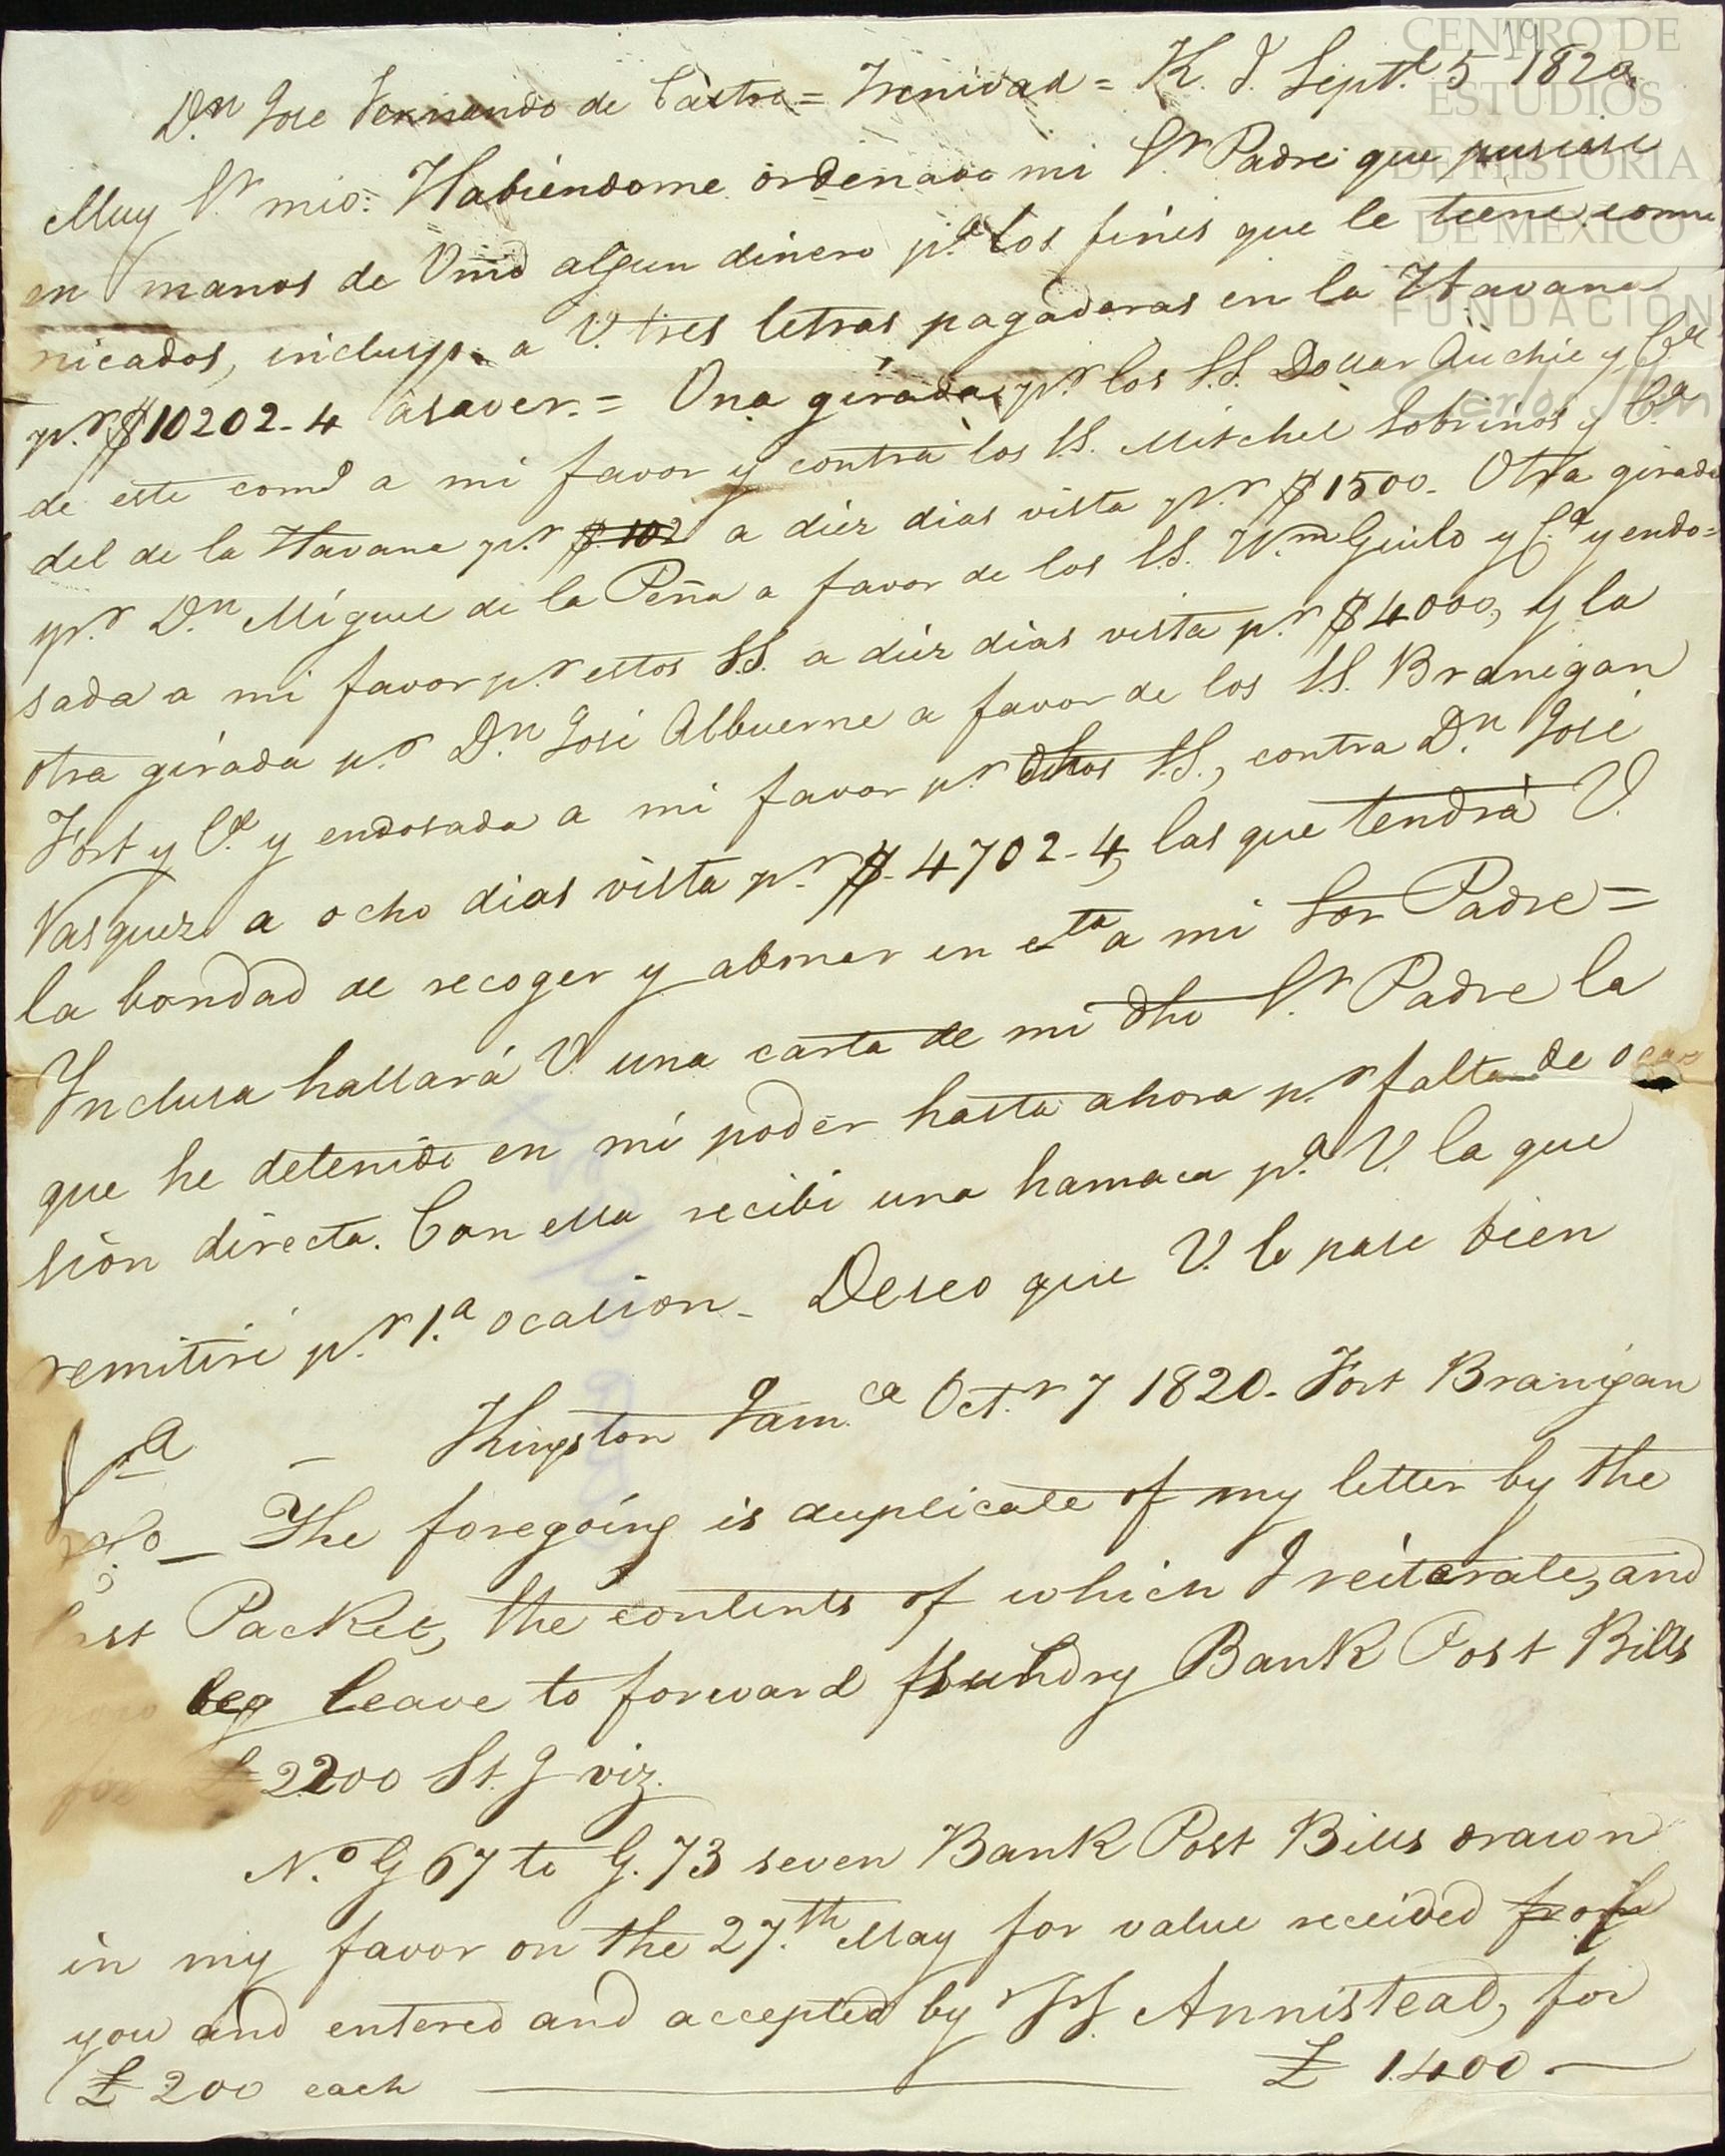 CENTRO DE
ESTUDIOS
DE HISTORIA
DE MEXICO
FUNDACION
Dn Jose Fernando de Castro = Trinidad = K. J. Septe 5 1820
Muy Sr mio: Habiéndome ordenado mi Sr Padre que pusiese
en manos de Vmd algun dinero pa los fines que le tiene comu
nicados, incluyo a V. tres letras pagaderas en la Havana
pr $10202-4 asaver = Una girada pr los SS. Dollar Auchie y Ca
de este comd a mi favor y contra los SS. Mitchel Sobrinos y Ca
del de la Havana pr $ 102 a diez dias vista pr $1500- Otra girada
pr Dn Miguel de la Peña a favor de los SS. Wm Geild y Ca y endo=
sada a mi favor pr estos SS. a diez dias vista pr $4000, y la
otra girada pr Dn José Albuerne a favor de los SS. Branigan
Fort y Ca y endosada a mi favor pr dhos SS., contra Dn José
Vasquez a ocho dias vista pr $ 4702-4, las que tendrá V.
la bondad de recoger y abonar en cta a mi Sor Padre =
Inclusa hallará V. una carta de mi dho Sr Padre la
que he detenido en mi poder hasta ahora pr falta de oca
sion directa. Con ella recibi una hamaca pa V. la que
remitiré pr 1.a ocasion - Deseo que V. lo pase bien
Kingston Jamca Octr 7 1820- Fort Branigan
The foregoing is duplicate of my letter by the
last Packet, the contents of which I reiterate, and
now beg leave to forward sundry Bank Post Bills
for £ 2200 St.g viz.
N.o G 67 to G. 73 seven Bank Post Bills drawn
in my favor on the 27.th May for value received of
you and entered and accepted by Annistead, for
£ 200 each £ 1400.